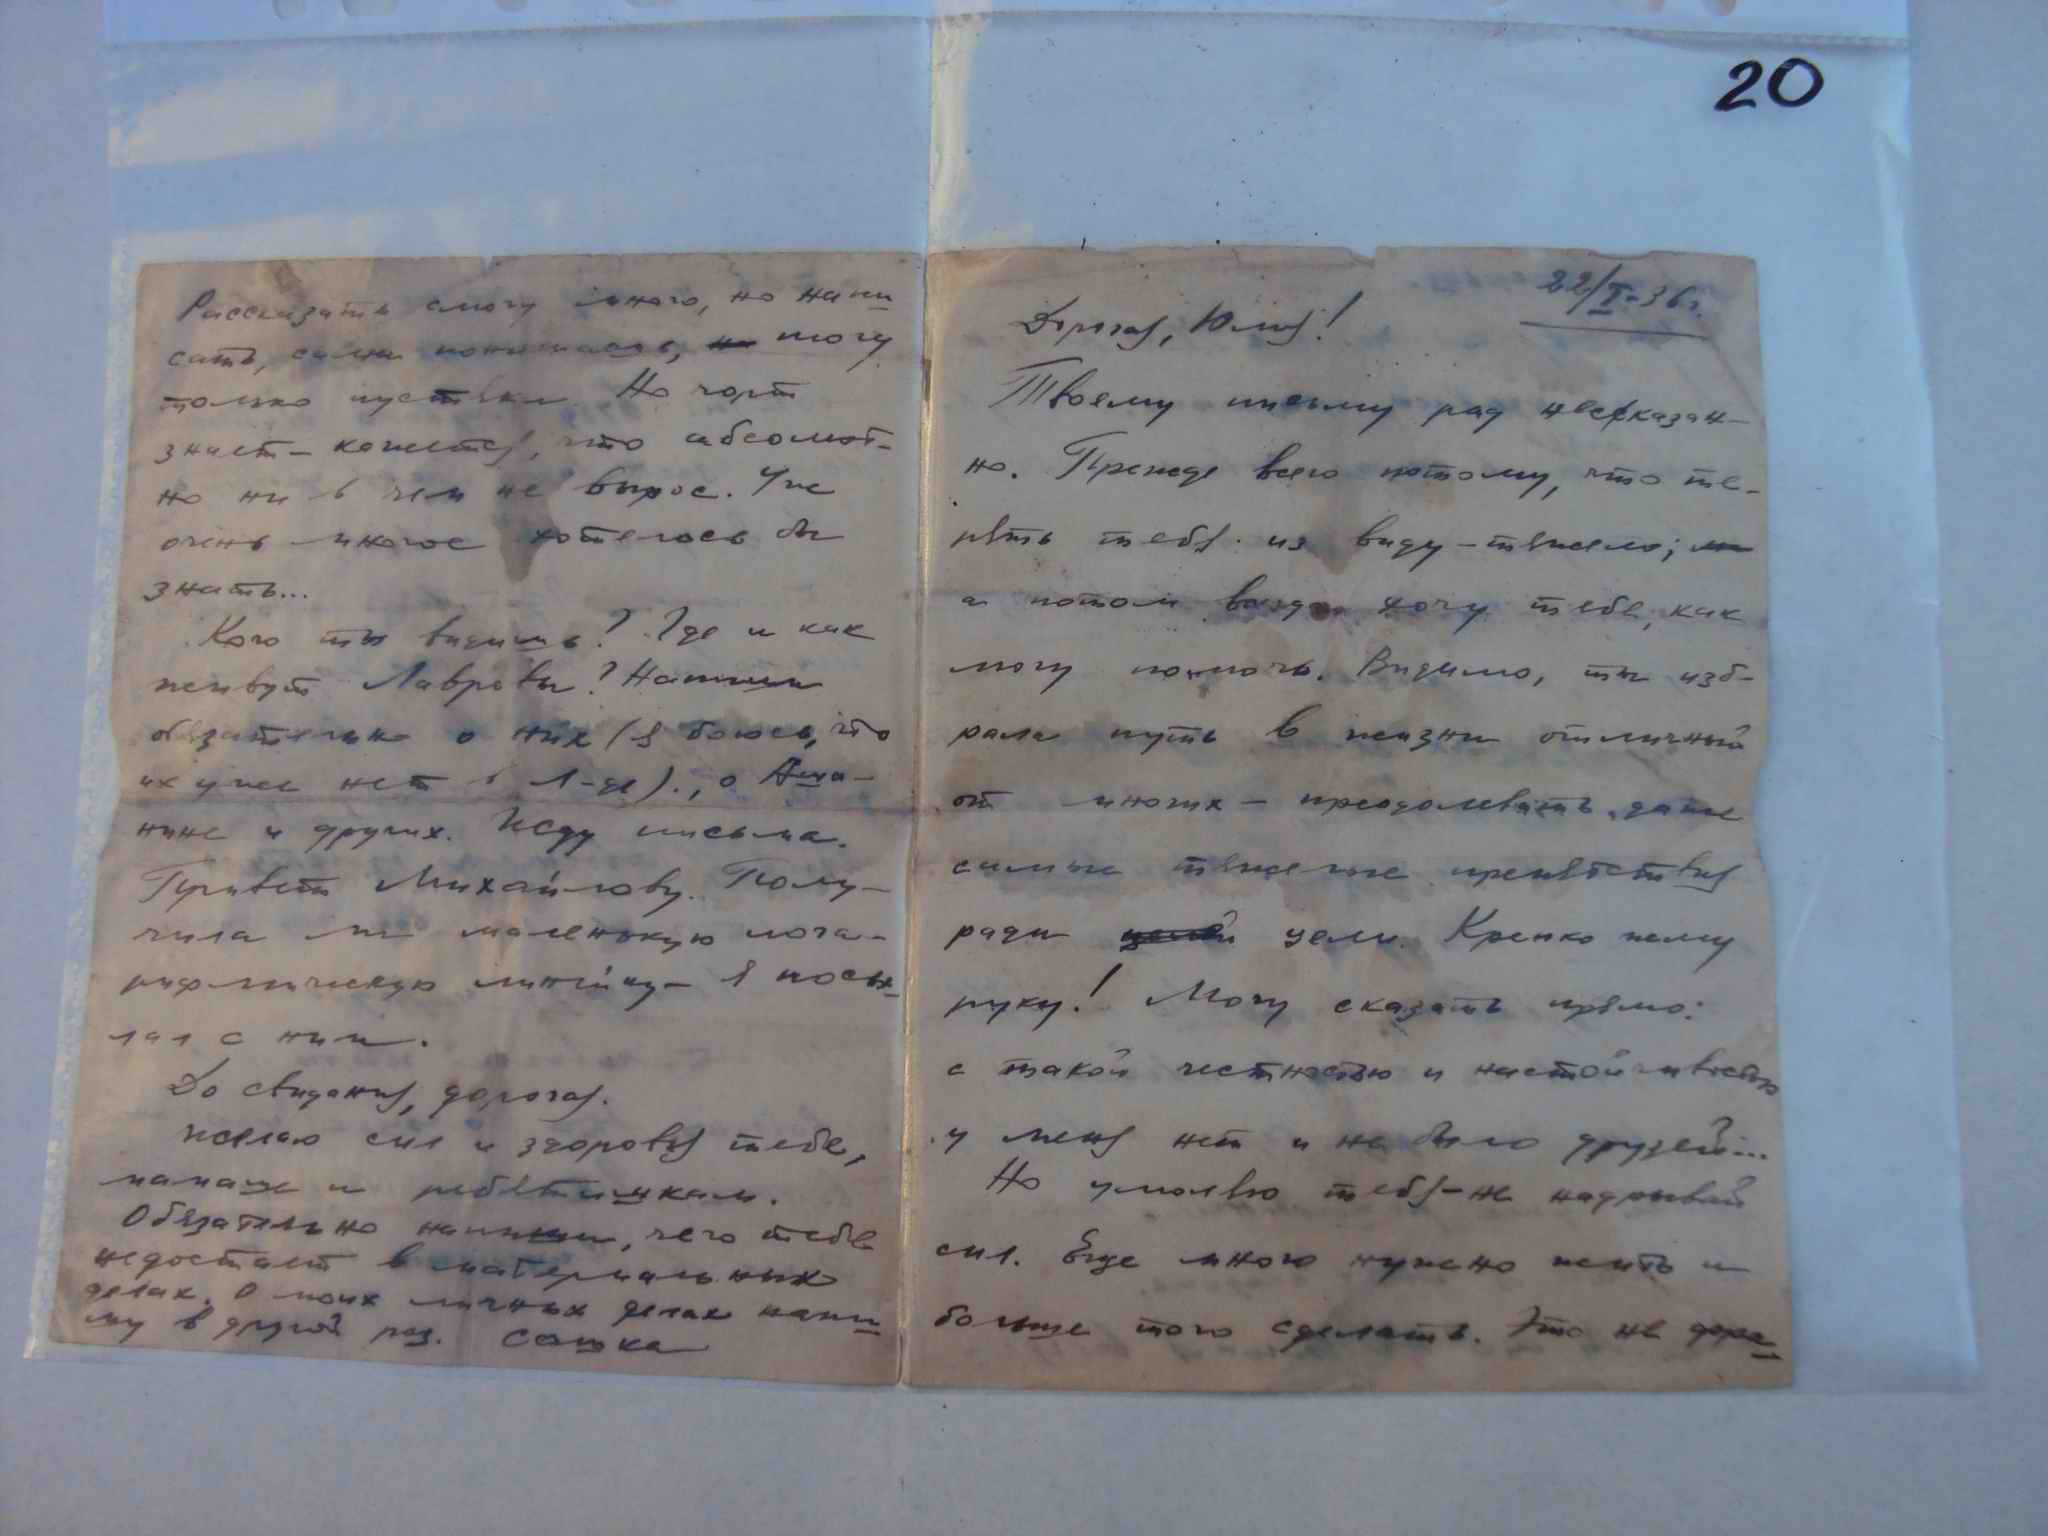 20
22/I-36 г.
Дорогая, Юлия!
Твоему письму рад несказан-
но. Прежде всего потому, что те-
рять тебя из виду - тяжело;
а потом всегда хочу тебе, как
могу помочь. Видимо, ты изб-
рала путь в жизни отличный
от многих - преодолевать даже
самые тяжелые препятствия
ради цели. Крепко жму
руку! Могу сказать прямо:
с такой честностью и настойчивостью
у меня нет и не было друзей...
Но умоляю тебя - не надрывай
сил. Еще много нужно жить и
больше того сделать. Это не фра-
Рассказать смогу много, но напи
сать, сама понимаешь, могу
только пустяки. Но чорт
знает - кажется, что абсолют-
но ни в чем не вырос. Уже
очень многое хотелось бы
знать...
Кого ты видишь? Где и как
живут Лавровы? Напиши
обязательно о них (я боюсь, что
их уже нет в Л-де)., о Ама-
нине и других. Жду письма.
Привет Михайлову. Полу-
чила ли маленькую лога-
рифмическую линейку - я посы-
лал с ним.
До свидания, дорогая.
Желаю сил и здоровья тебе,
мамаше и ребятишкам.
Обязательно напиши, чего тебе
недостает в материальных
делах. О моих личных делах напи
шу в другой раз. Сашка